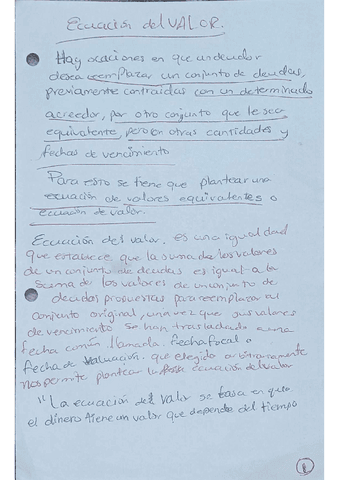 Ecuación del VALOR.
Hay ocaciones en que un deudor
desea reemplazar un conjunto de deudas,
previamente contraidas con un determinado
acreedor, por otro conjunto que le sea
equivalente, pero en otras cantidades y
fechas de vencimiento
Para esto se tiene que plantear una
ecuación de valores equivalentes o
ecuación de valor.
Ecuación del valor. es una igualdad
que establece que la suma de los valores
de un conjunto de deudas es igual a la
suma de los valores de un conjunto de
deudas propuestas para reemplazar al
conjunto original, una vez que sus valores
de vencimiento se han trasladado a una
fecha común llamada. Fecha focal o
fecha de valuación. que elegida arbitrariamente
nos permite plantear la ecuación del valor
"La ecuación del valor se basa en que
el dinero tiene un valor que depende del tiempo